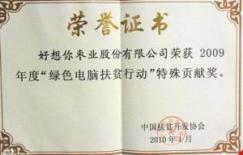 荣誉证书
好想你枣业股份有限公司荣获 2009
年度“绿色电脑扶贫行动”特殊贡献奖。
中国扶贫开发协会
2010 年 1 月